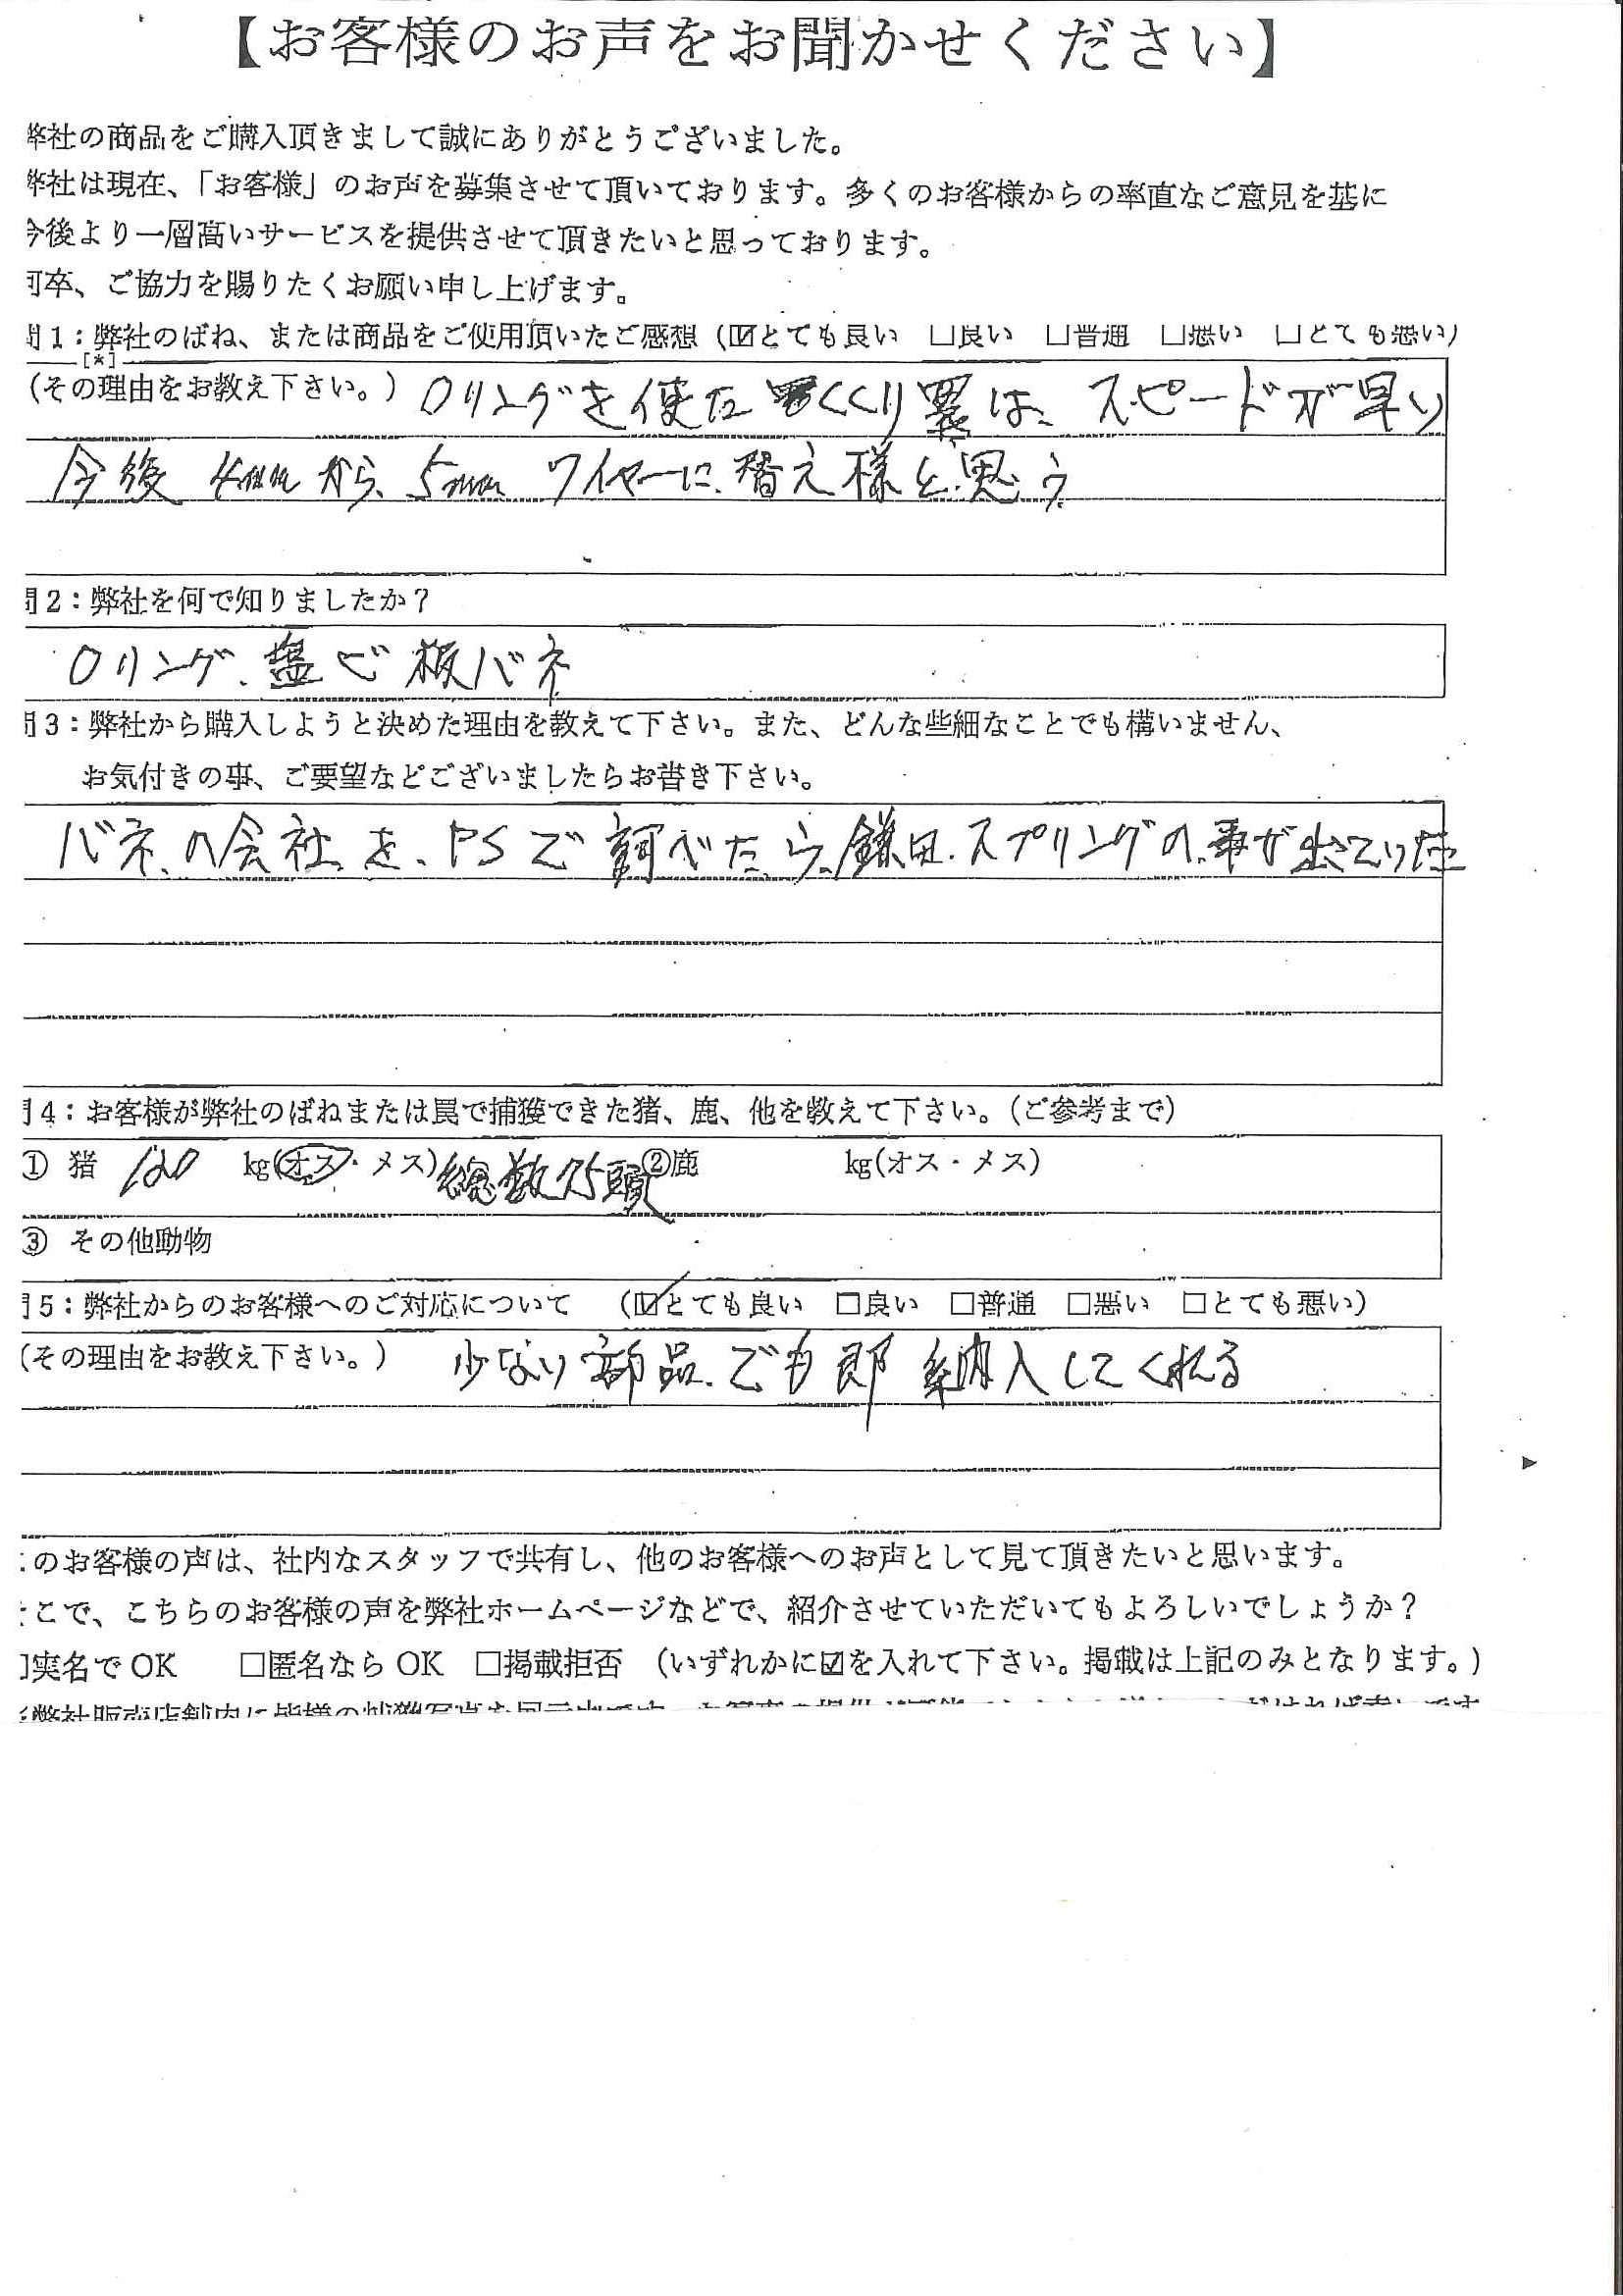 【お客様のお声をお聞かせください】
弊社の商品をご購入頂きまして誠にありがとうございました。
弊社は現在、「お客様」のお声を募集させて頂いております。多くのお客様からの率直なご意見を基に
今後より一層高いサービスを提供させて頂きたいと思っております。
何卒、ご協力を賜りたくお願い申し上げます。
問1：弊社のばね、または商品をご使用頂いたご感想（☑とても良い　□良い　□普通　□悪い　□とても悪い）
[*]
（その理由をお教え下さい。） Oリングを使たくくり罠は、スピードが早い
今後 4mmから、5mm ワイヤーに替え様と思う
問2：弊社を何で知りましたか？
Oリング、
板バネ
問3：弊社から購入しようと決めた理由を教えて下さい。また、どんな些細なことでも構いません、
お気付きの事、ご要望などございましたらお書き下さい。
バネの会社を、PSで調べたら、鎌田スプリングの事が出ていた
問4：お客様が弊社のばねまたは罠で捕獲できた猪、鹿、他を教えて下さい。（ご参考まで）
① 猪 120 kg(オス・メス) 総数75頭 ②鹿 kg(オス・メス)
③ その他動物
問5：弊社からのお客様へのご対応について　（☑とても良い　□良い　□普通　□悪い　□とても悪い）
（その理由をお教え下さい。） 少ない部品でも即納入してくれる
このお客様の声は、社内なスタッフで共有し、他のお客様へのお声として見て頂きたいと思います。
そこで、こちらのお客様の声を弊社ホームページなどで、紹介させていただいてもよろしいでしょうか？
□実名でOK　□匿名ならOK　□掲載拒否　（いずれかに☑を入れて下さい。掲載は上記のみとなります。）